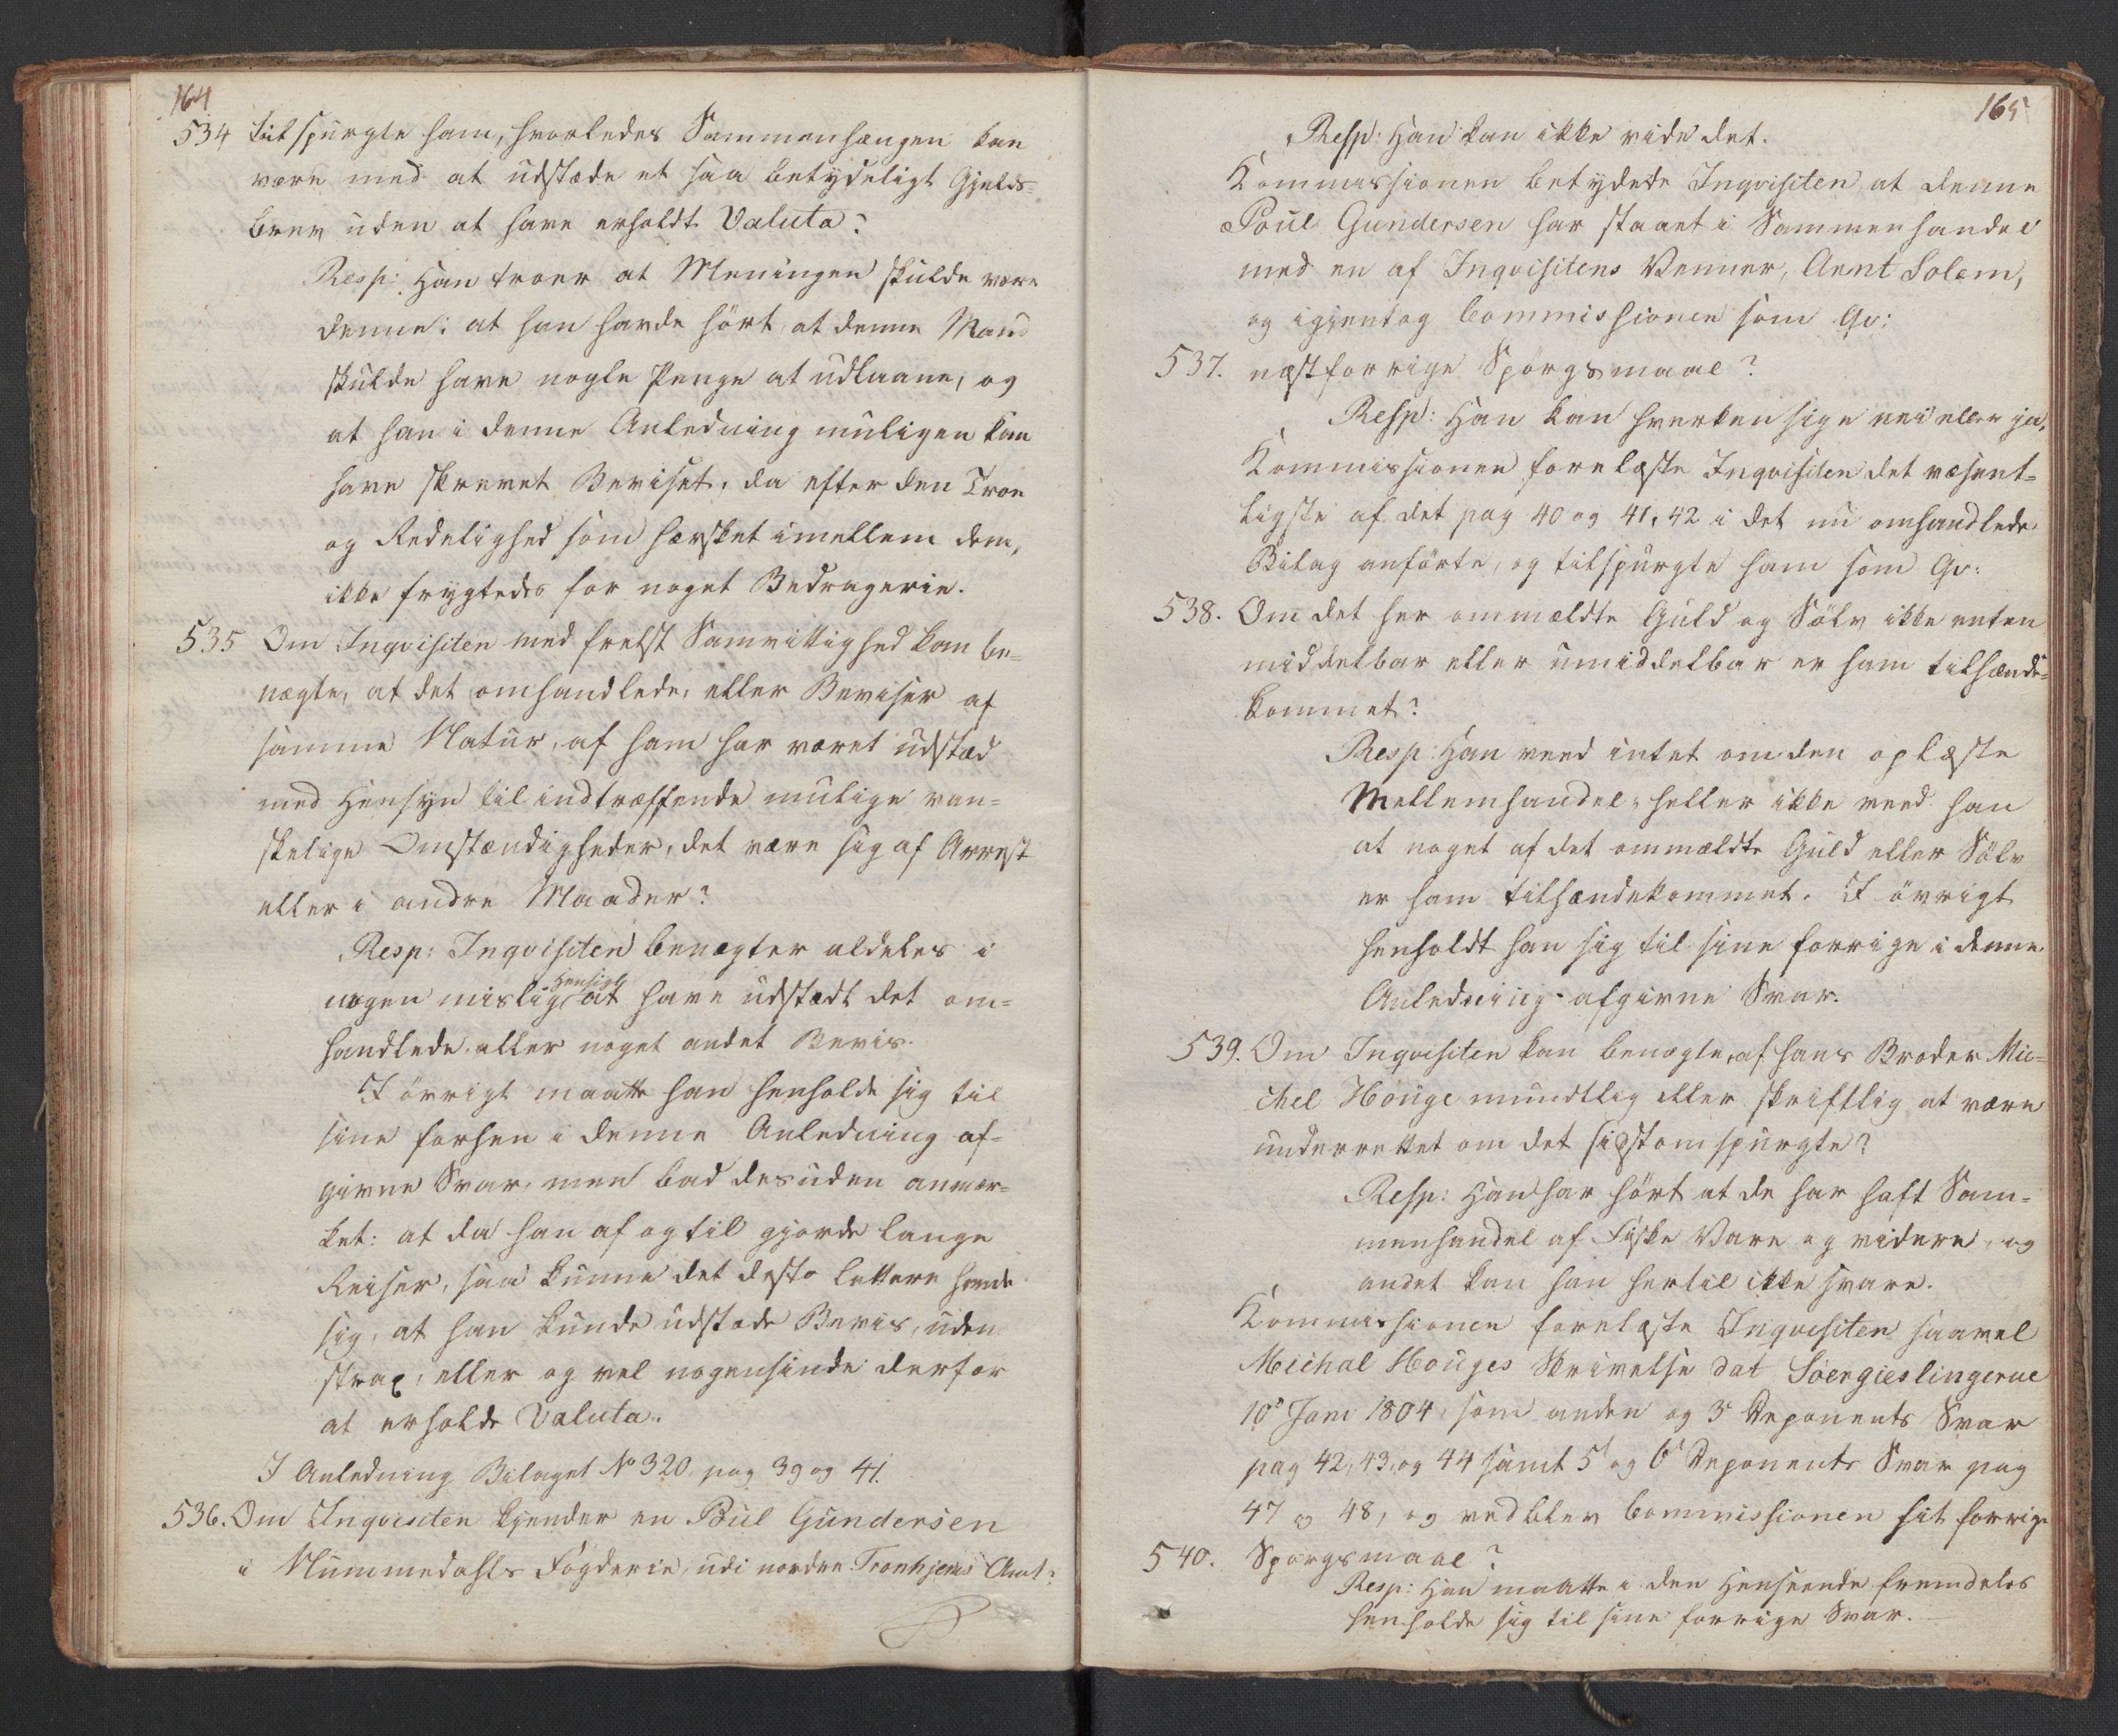 164
534 tilspurgte ham, hvorledes Sammenhængen kan
være med at udstæde et saa betydeligt Gjelds-
brev uden at have erholdt Valuta?
Resp: Han troer at Meningen skulde være
denne: at han havde hört, at denne Mand
skulde have nogle Penge at udlaane, og
at han i denne Anledning muligen kan
have skrevet Beviset, da efter den Troe
og Redelighed som hersket imellem dem,
ikke frygtedes for noget Bedragerie.
535 Om Inqvisiten med frelst Samvittighed kan be-
nægte, at det omhandlede, eller Beviser af
samme Natur, af ham har været udstæd
med Hensyn til indtræffende mulige van-
skelige Omstændigheder, det være sig af Arrest
eller i andre Maader?
Resp: Inqvisiten benægter aldeles i
nogen mislig Hensigt at have udstædt det om-
handlede eller noget andet Bevis.
I övrigt maatte han henholde sig til
sine forhen i denne Anledning af-
givne Svar, men bad desuden anmær-
ket: at da han af og til gjorde lange
Reiser, saa kunne det desto lettere hænde
sig, at han kunde udstæde Bevis, uden
strax, eller og vel nogensinde derfor
at erholde Valuta.
I Anledning Bilaget No 320. pag 39 og 41.
536. Om Inqvisiten kjender en Poul Gundersen
i Nummedahls Fogderie, udi nordre Tronhjems Amt?
165
Resp: Han kan ikke vide det.
Kommissionen betydede Inqvisiten at denne
Poul Gundersen har staaet i Sammenhandel
med en af Inqvisitens Venner, Arnt Solem,
og igjentog Commissionen som Qv:
537. næstforrige Spörgsmaal?
Resp: Han kan hverken sige nei eller ja.
Kommissionen forelæste Inqvisiten det væsent-
ligste af det pag 40 og 41, 42 i det nu omhandlede
Bilag anförte, og tilspurgte ham som Qv:
538. Om det her ommældte Guld og Sölv ikke enten
middelbar eller umiddelbar er ham tilhænde-
kommet?
Resp: Han veed intet om den oplæste
Mellemhandel, heller ikke veed han
at noget af det ommældte Guld eller Sölv
er ham tilhændekommet. I övrigt
henholdt han sig til sine forrige i denne
Anledning afgivne Svar.
539. Om Inqvisiten kan benægte, af hans Broder Mic-
chel Houge mundtlig eller skriftlig at være
underrettet om det sidstomspurgte?
Resp: Han har hört at de har haft Sam-
menhandel af Fiske Vare og videre, og
andet kan han hertil ikke svare.
Kommissionen forelæste Inqvisiten saavel
Michal Houges Skrivelse dat Söergieslingerne
10de Jani 1804, som anden og 3de Deponents Svar
pag 42, 43, og 44 samt 5te og 6te Deponents Svar pag
47 og 48, og vedblev Commissionen sit forrige
540. Spörgsmaal?
Resp: Han maatte i den Henseende fremdeles
henholde sig til sine forrige Svar.